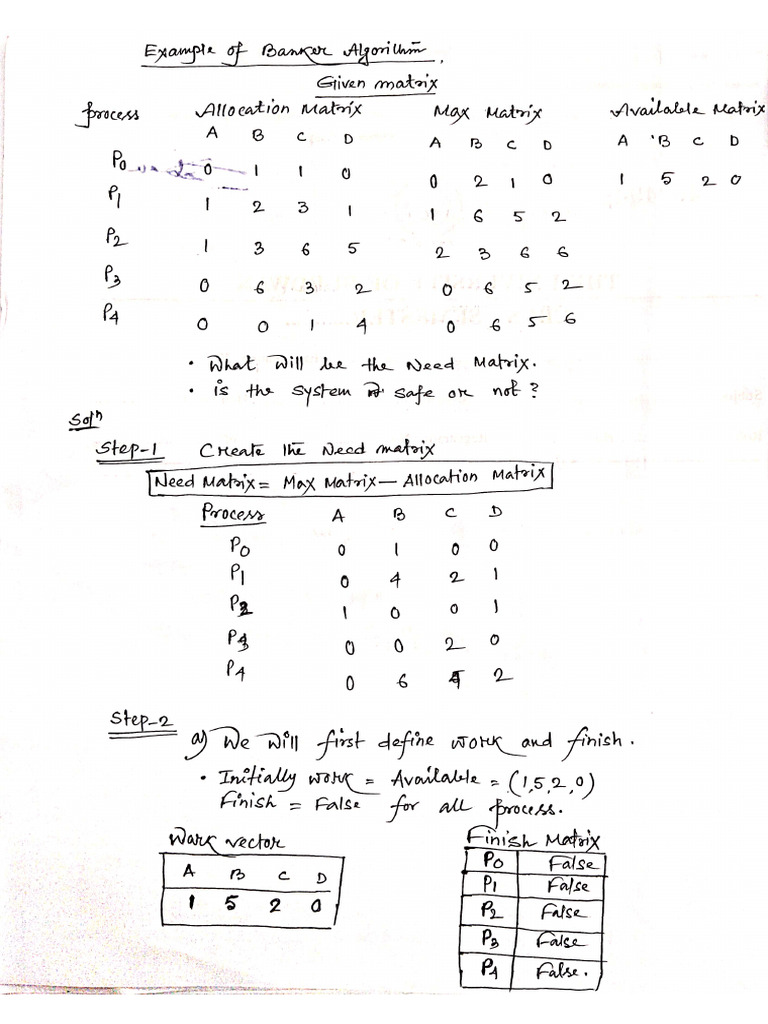 Example of Banker Algorithm.
Given matrix
Process Allocation Matrix Max Matrix Available Matrix
A B C D A B C D A B C D
P0 0 1 1 0 0 2 1 0 1 5 2 0
P1 1 2 3 1 1 6 5 2
P2 1 3 6 5 2 3 6 6
P3 0 6 3 2 0 6 5 2
P4 0 0 1 4 0 6 5 6
• What will be the Need Matrix.
• is the system safe or not?
Solⁿ
Step-1 Create the Need matrix
Need Matrix = Max Matrix - Allocation Matrix
Process A B C D
P0 0 1 0 0
P1 0 4 2 1
P2 1 0 0 1
P3 0 0 2 0
P4 0 6 4 2
Step-2
a) We will first define work and finish.
• Initially work = Available = (1,5,2,0)
Finish = False for all process.
Work vector
A B C D
1 5 2 0
Finish Matrix
P0 False
P1 False
P2 False
P3 False
P4 False.